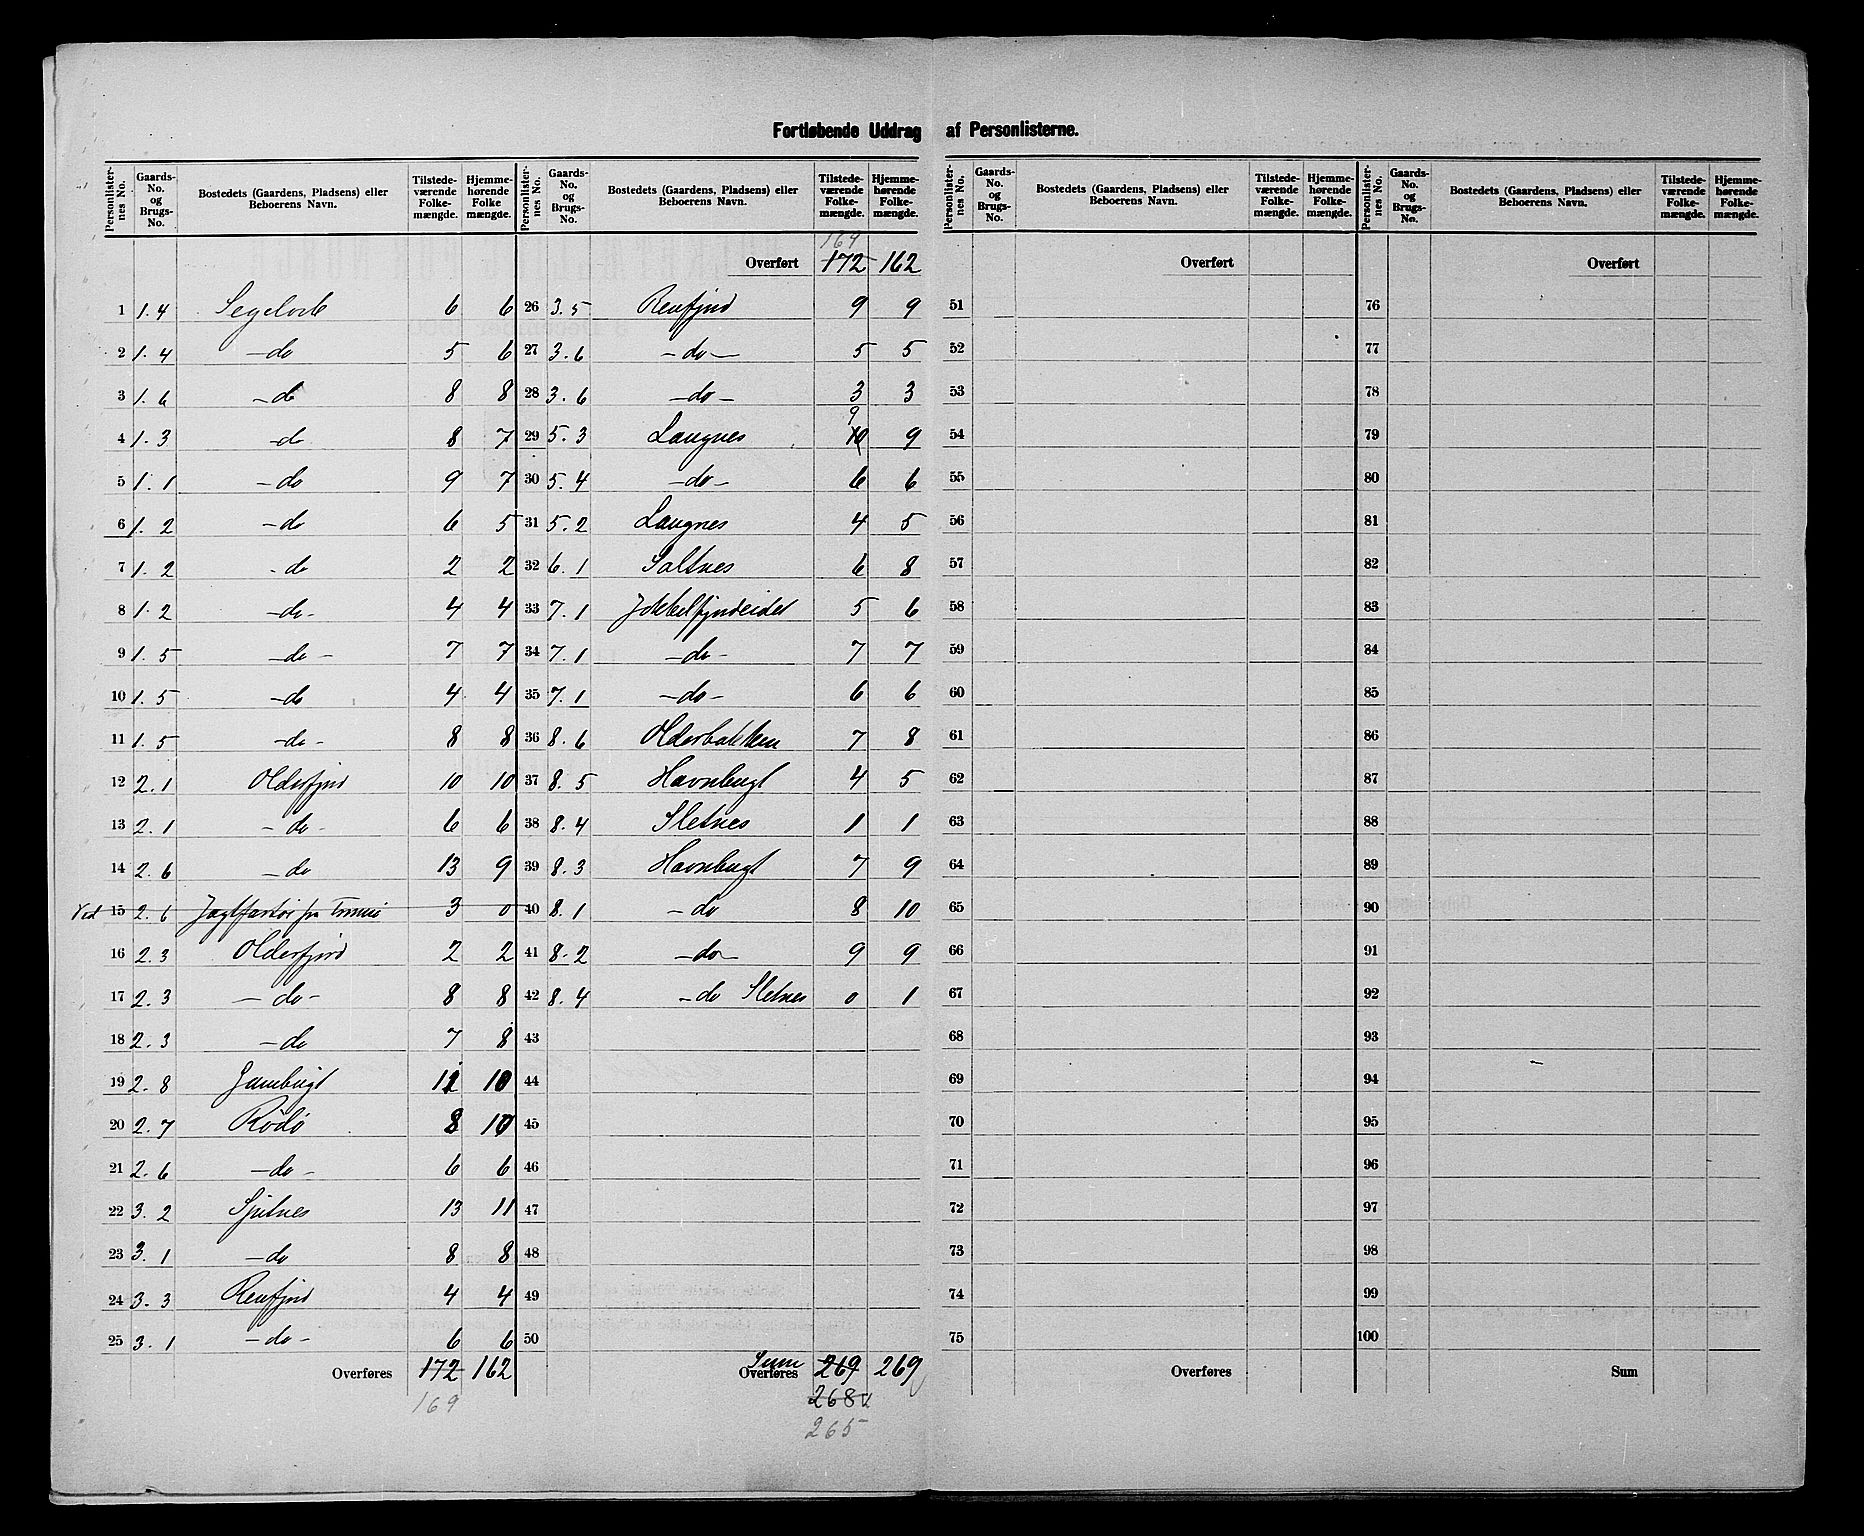 Fortløbende Uddrag af Personlisterne.
Personlister-nes No. | Gaards-No. og Brugs-No. | Bostedets (Gaardens, Pladsens) eller Beboerens Navn. | Tilstede-værende Folke-mængde. | Hjemme-hørende Folke mængde.
1 1.4 6 6
2 1.4 —do 5 6
3 1.6 —do 8 8
4 1.3 —do 8 7
5 1.1 —do 9 7
6 1.2 —do 6 5
7 1.2 —do 2 2
8 1.2 —do— 4 4
9 1.5 —do— 7 7
10 1.5 —do 4 4
11 1.5 —do— 8 8
12 2.1 Olderfjord 10 10
13 2.1 —do— 6 6
14 2.6 —do 13 9
Ved 15 2.6 Jagtfartøi fra Tromsø 3 0
16 2.3 Olderfjord 2 2
17 2.3 —do— 8 8
18 2.3 —do 7 8
19 2.8 10
20 2.7 Rödö 8 10
21 2.6 —do— 6 6
22 3.2 13 11
23 3.1 —do 8 8
24 3.3 Reafjord 4 4
25 3.1 —do— 6 6
Overføres 172 162
169
Personlister-nes No. | Gaards-No. og Brugs-No. | Bostedets (Gaardens, Pladsens) eller Beboerens Navn. | Tilstede-værende Folke-mængde. | Hjemme-hørende Folke-mængde.
169
Overført 172 162
26 3.5 Reafjord 9 9
27 3.6 —do— 5 5
28 3.6 —do— 3 3
9
29 5.3 Langnes 10 9
30 5.4 —do— 6 6
31 5.2 Langnes 4 5
32 6.1 Saltnes 6 8
33 7.1 Jökkelfjordeidet 5 6
34 7.1 —do— 7 7
35 7.1 —do— 6 6
36 8.6 Olderbakken 7 8
37 8.5 Havnbugt 4 5
38 8.4 Sletnes 1 1
39 8.3 Havnbugt 7 9
40 8.1 —do 8 10
41 8.2 —do— 9 9
42 8.4 —do Sletnes 0 1
43
44
45
46
47
48
49
50
Sum
Overføres 269 269
268
265
Personlister-nes No. | Gaards-No. og Brugs-No. | Bostedets (Gaardens, Pladsens) eller Beboerens Navn. | Tilstede-værende Folke-mængde. | Hjemme-hørende Folke-mængde.
Overført
51
52
53
54
55
56
57
58
59
60
61
62
63
64
65
66
67
68
69
70
71
72
73
74
75
Overføres
Personlister-nes No. | Gaards-No. og Brugs-No. | Bostedets (Gaardens, Pladsens) eller Beboerens Navn. | Tilstede-værende Folke-mængde. | Hjemme-hørende Folke-mængde.
Overført
76
77
78
79
80
81
82
83
84
85
86
87
88
89
90
91
92
93
94
95
96
97
98
99
100
Sum